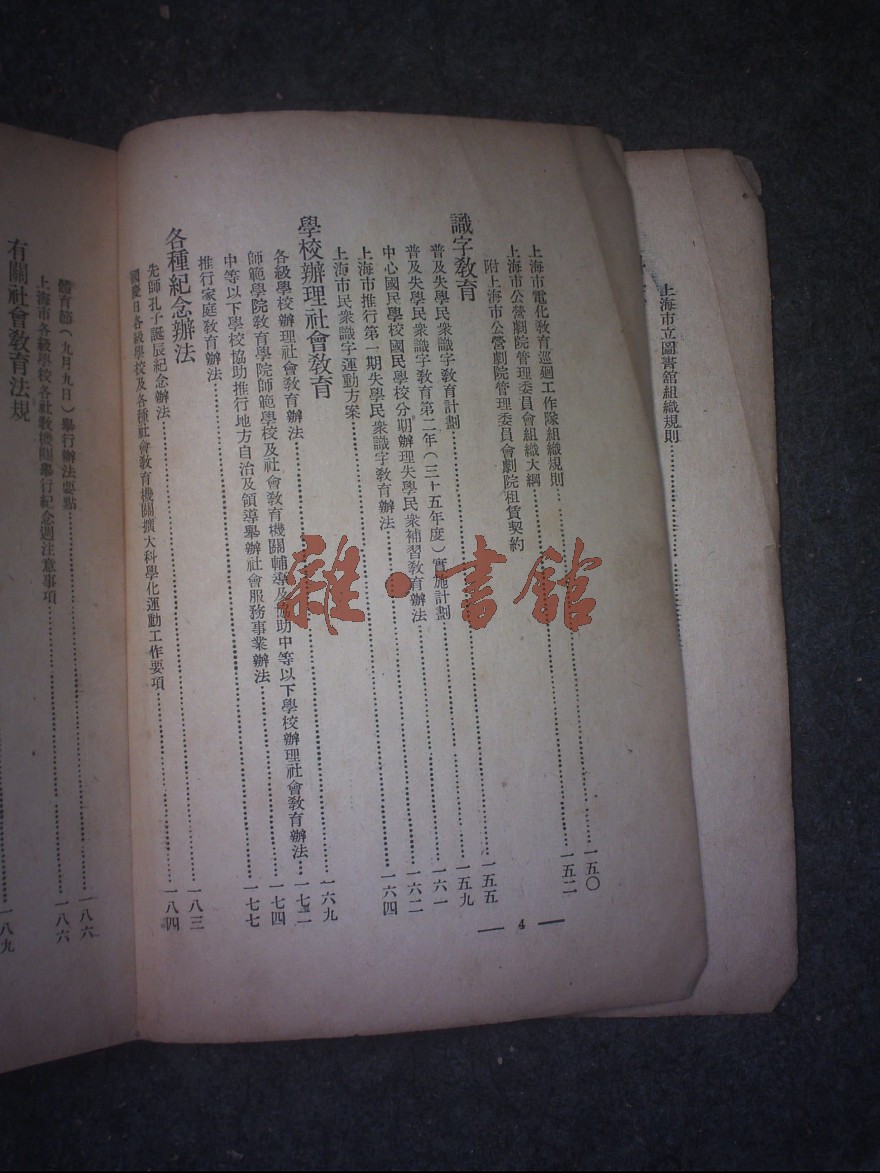 上海市立圖書館組織規則
上海市電化教育巡廻工作隊組織規則……一五〇
上海市公營劇院管理委員會組織大綱……一五二
附上海市公營劇院管理委員會劇院租賃契約
識字教育
普及失學民衆識字教育計劃……一五五
普及失學民衆識字教育第二年(三十五年度)實施計劃……一五九
中心國民學校國民學校分期辦理失學民衆補習教育辦法……一六一
上海市推行第一期失學民衆識字教育辦法……一六二
上海市民衆識字運動方案……一六四
學校辦理社會教育
各級學校辦理社會教育辦法……一六九
師範學院教育學院師範學校及社會教育機關輔導及協助中等以下學校辦理社會教育辦法……一七二
中等以下學校協助推行地方自治及領導舉辦社會服務事業辦法……一七四
推行家庭教育辦法……一七七
各種紀念辦法
先師孔子誕辰紀念辦法……一八三
國慶日各級學校及各種社會教育機關擴大科學化運動工作要項……一八四
— 4 —
體育節(九月九日)舉行辦法要點……一八六
上海市各級學校各社教機關舉行紀念週注意事項……一八六
有關社會教育法規
……一八九
雜·書館